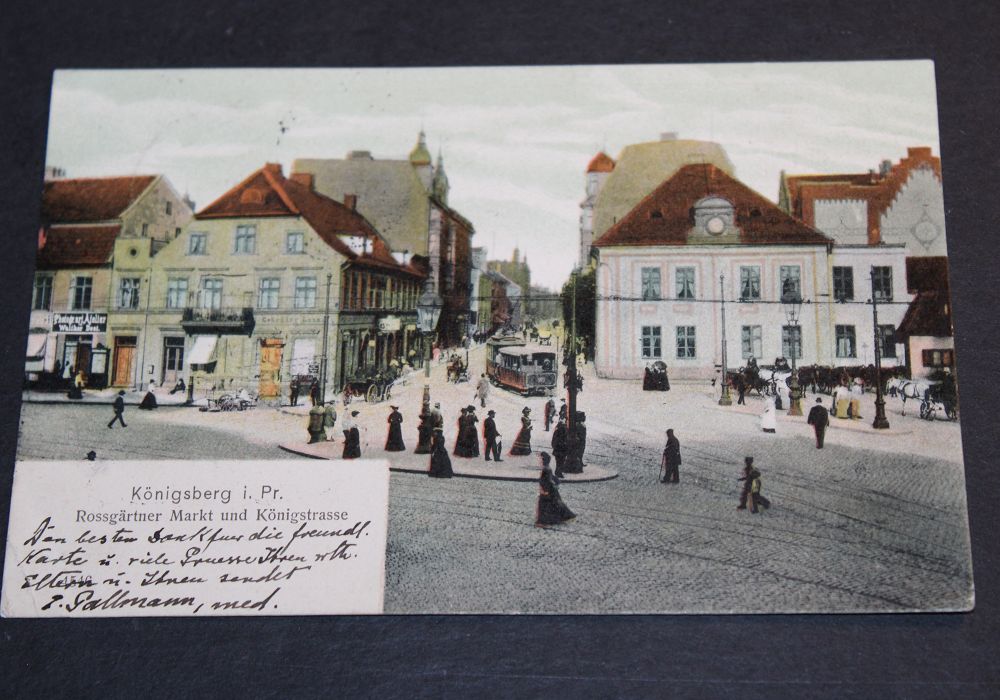 Photogr. Atelier
Walther Dost.
Königsberg i. Pr.
Rossgärtner Markt und Königstrasse
Den besten Dank fuer die freundl.
Karte u. viele Gruesse Ihren wth.
Eltern u. Ihnen sendet
Pallmann, med.